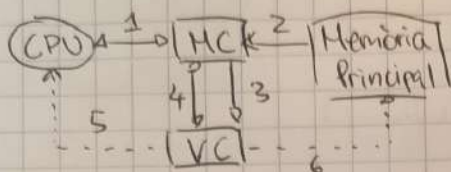 CPU 1 MC 2 Memòria
Principal
4 3
5 VC 6